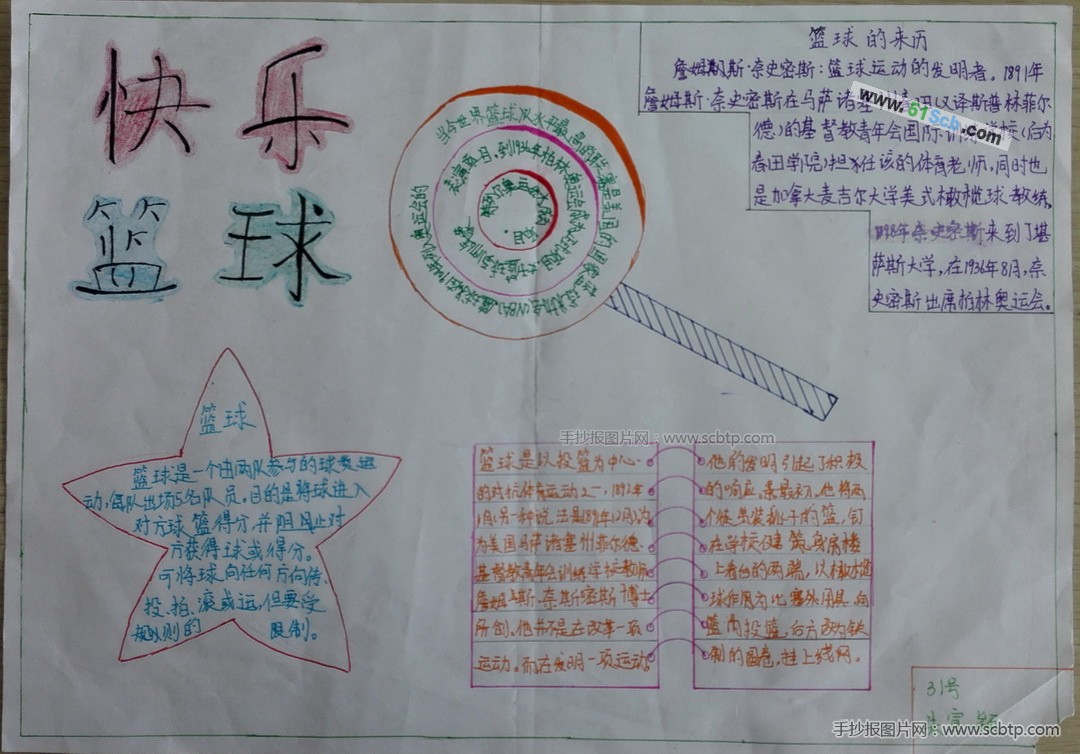 快乐
篮球
篮球的来历
詹姆斯·奈史密斯：篮球运动的发明者。1891年
詹姆斯·奈史密斯在马萨诸塞州春田(又译斯普林菲尔
德)的基督教青年会国际训 学校(后为
春田学院)担任该的体育老师,同时也
是加拿大麦吉尔大学美式橄榄球教练,
1898年奈史密斯来到了堪
萨斯大学,在1936年8月,奈
史密斯出席柏林奥运会。
www.51scb.com
当今世界篮球 水平最高的联赛是美国的国家篮球协会(NBA).
篮球
篮球是一个由两队参与的球类运
动,每队出场5名队员。目的是将球进入
对方球篮得分,并阻止对
方获得球或得分。
可将球向任何方向传、
投、拍、滚或运,但要受
规则的 限制。
手抄报图片网：www.scbtp.com
篮球是以投篮为中心
的对抗体育运动之一,1891年
1月(另一种说法是1891年12月)为
为美国马萨诸塞州 菲尔德
基督教青年会训练学校教师
詹姆斯·奈斯密斯博士
所创。他并不是在改革一项
运动。而在发明一项运动。
他的发明引起了积极
的响应,最初,他将两
个 装桃子的篮,钉
在学校健 房楼
上看台的两端,以橄榄
球作为比赛 用具,向
篮内投篮,后 改为铁
制的圆 ,挂上线网。
31号
手抄报图片网：www.scbtp.com